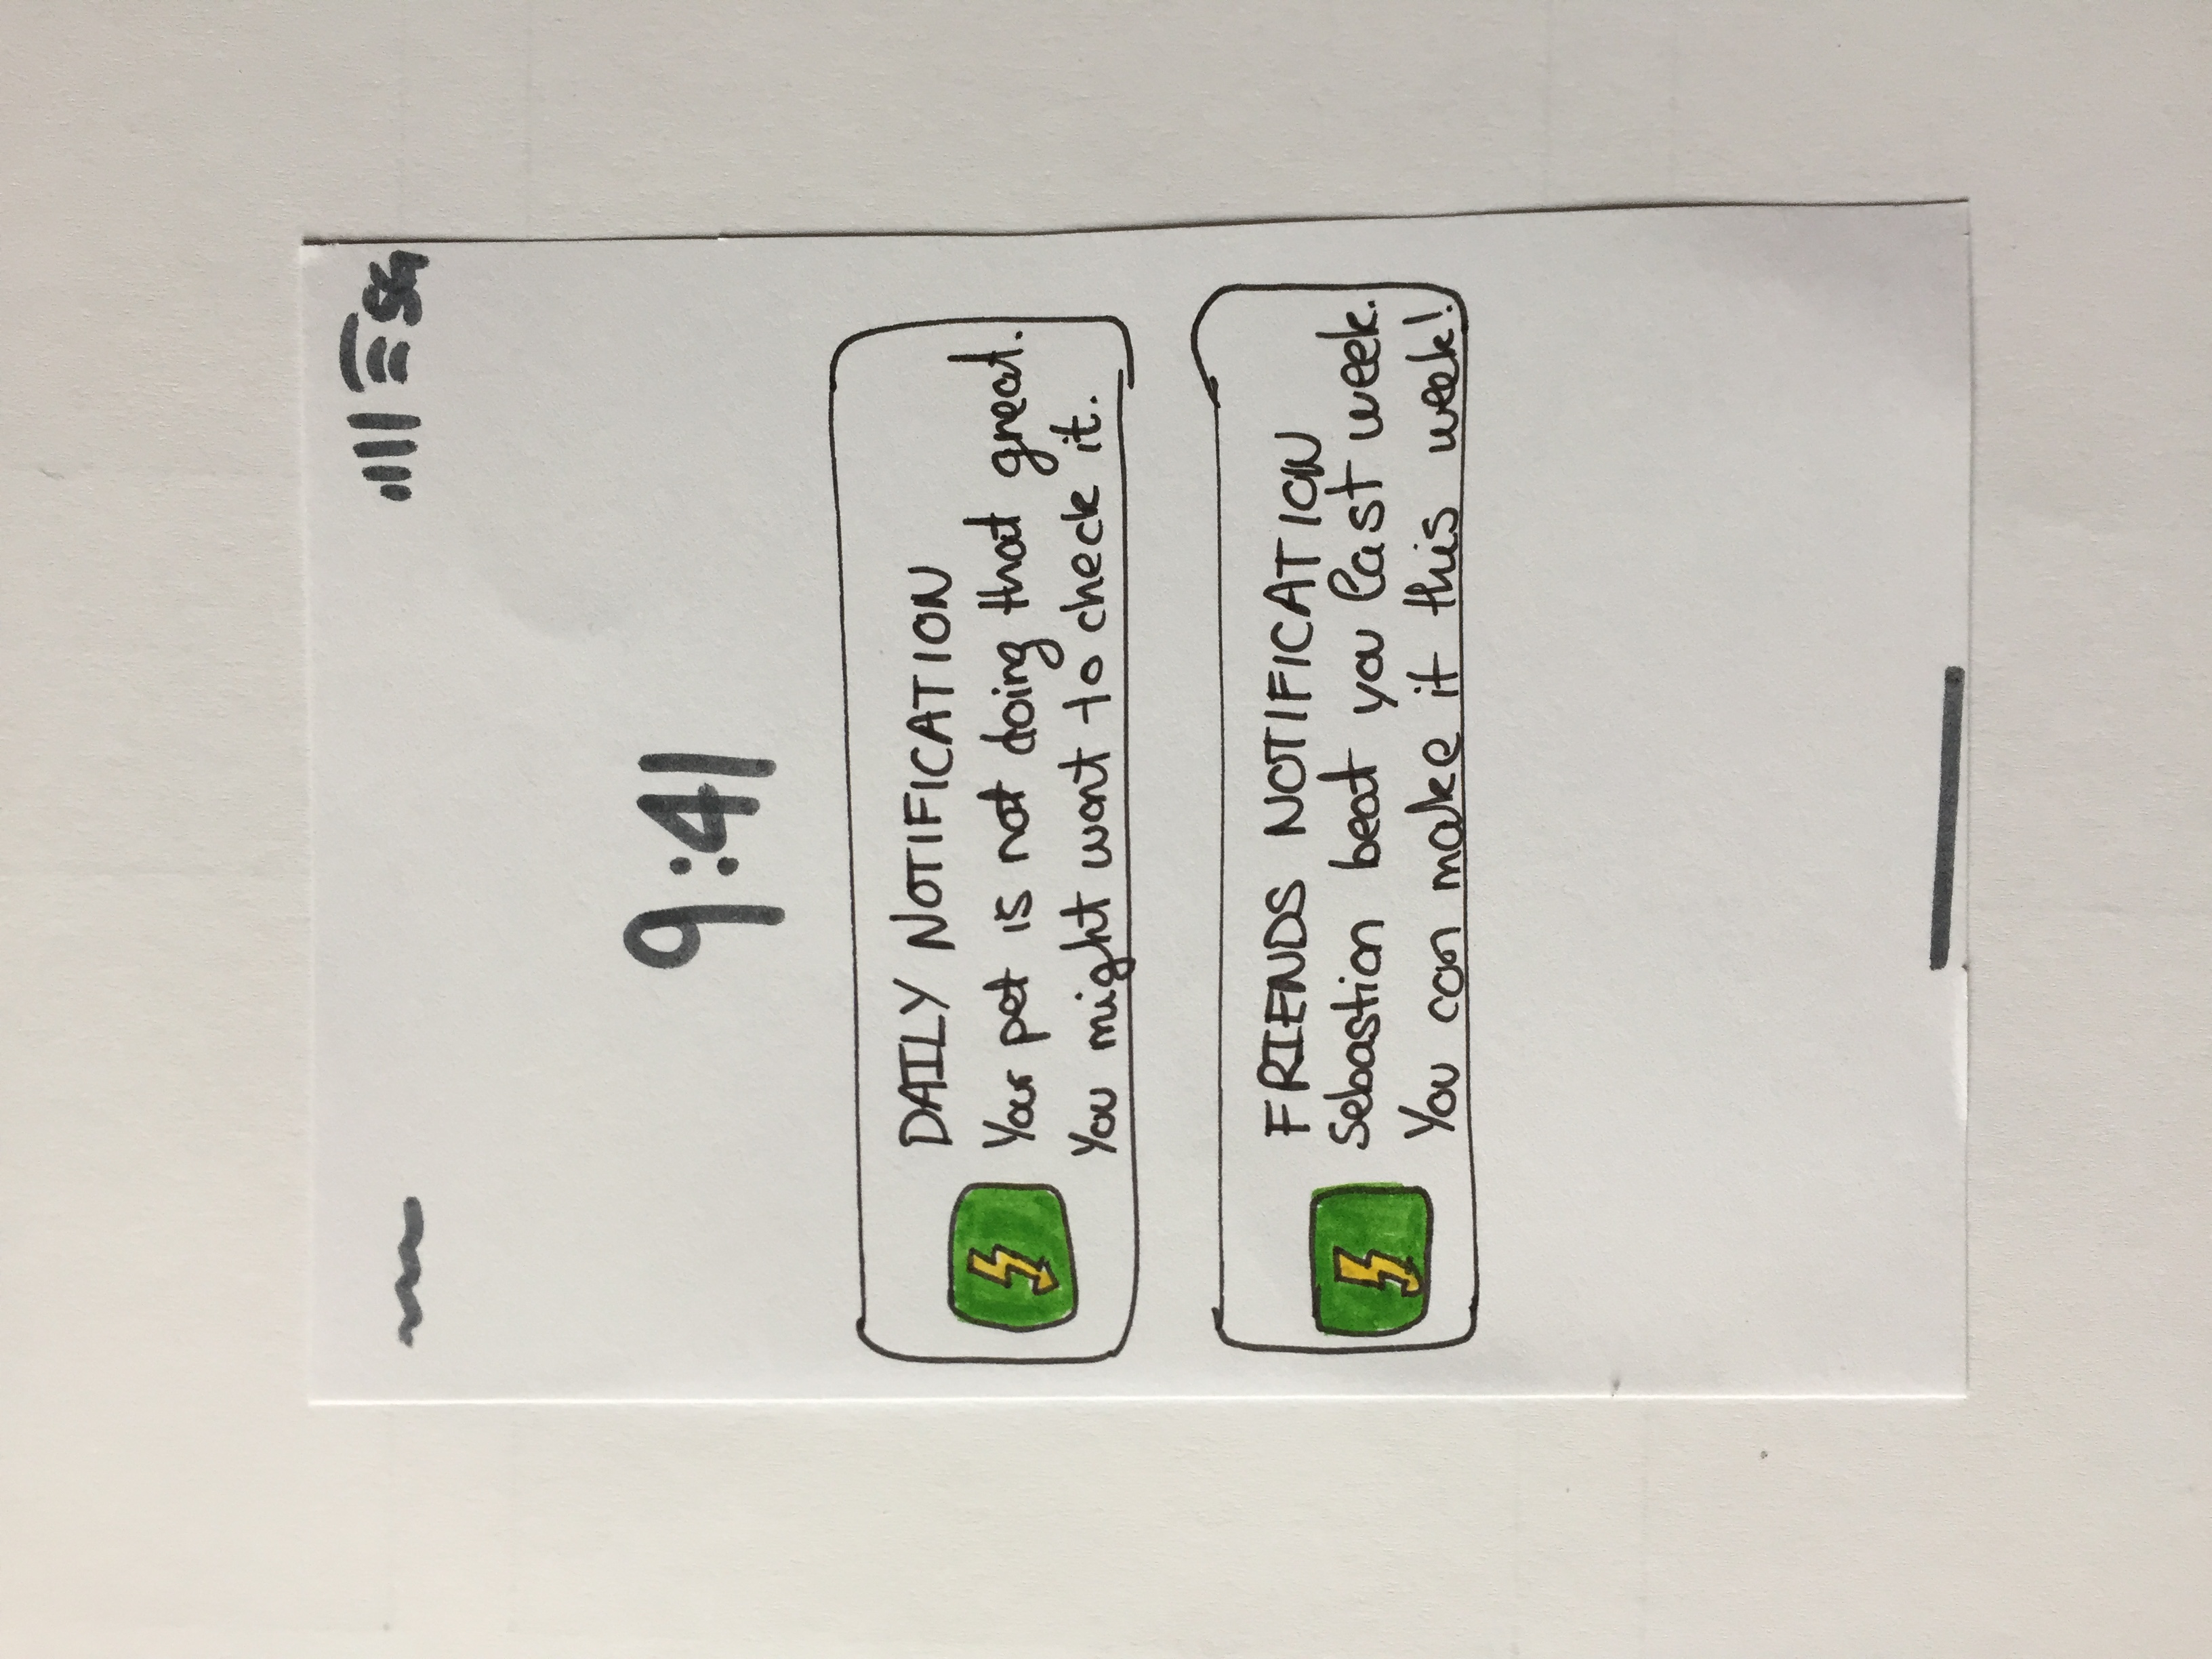 5G
9:41
DAILY NOTIFICATION
Your pet is not doing that great.
You might want to check it.
FRIENDS NOTIFICATION
Sebastian beat you last week.
You can make it this week!